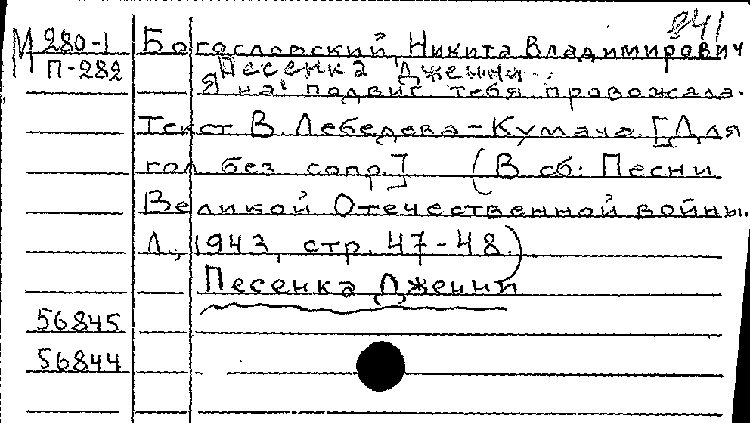 841
М 280-1 Богословский, Никита Владимирович
П-282 Песенка Дженни.
Я на подвиг тебя провожала.
Текст В. Лебедева-Кумача. [Для
гол. без сопр.] (В сб: Песни
Великой Отечественной войны.
Л., 1943, стр. 47-48.)
Песенка Дженни
56845
56844